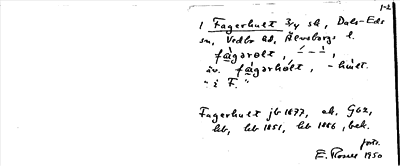 1-2
1 Fagerhult 3/4 sk, Dals-Eds
sn, Vedbo hd, Älvsborgs l.
fàgərolt, -́ - -̀,
äv. fàgərhólt, -hult.
"i F."
Fagerhult jb 1877, ek. G62,
hb, kb 1851, kb 1886, bek.
förs.
E. Rosell 1950